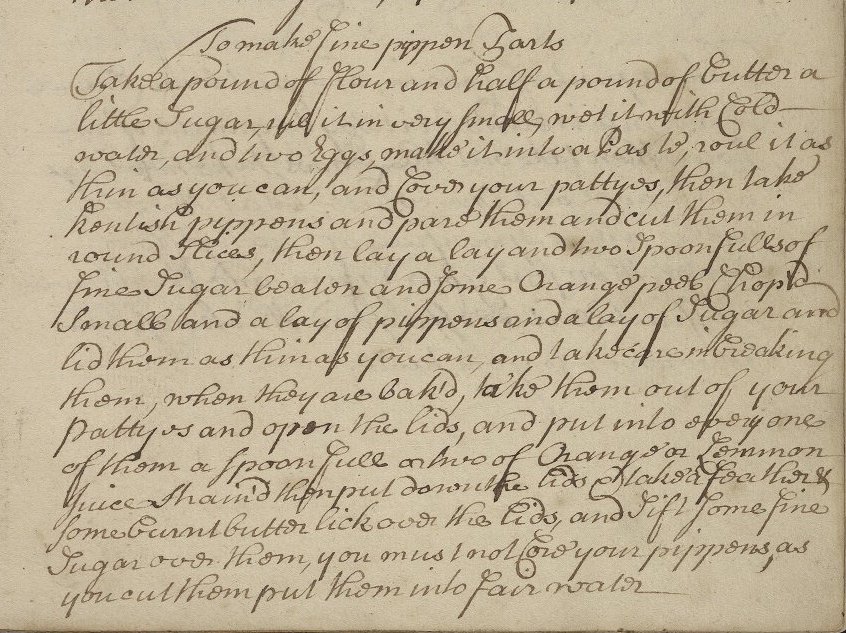 To make fine pippen Tarts
Take a pound of flour and half a pound of butter a
little Sugar, rub it in very small, wet it with Cold
water, and two Eggs, make it into a Paste, roul it as
thin as you can, and Cover your pattyes, then take
Kentish pippens and pare them and cut them in
round Slices, then lay a lay and two Spoonfulls of
fine Sugar beaten and some Orange peel Chop'd
Small and a lay of pippens and a lay of Sugar and
lid them as thin as you can, and take care in breaking
them, when they are bak'd, take them out of your
Pattyes and open the lids, and put into every one
of them a spoonfull or two of Orange or Lemmon
Juice Straind then put down the lids & take a feather &
some burnt butter lick over the lids, and Sift some fine
Sugar over them, you must not Core your pippens, as
you cut them put them into fair water